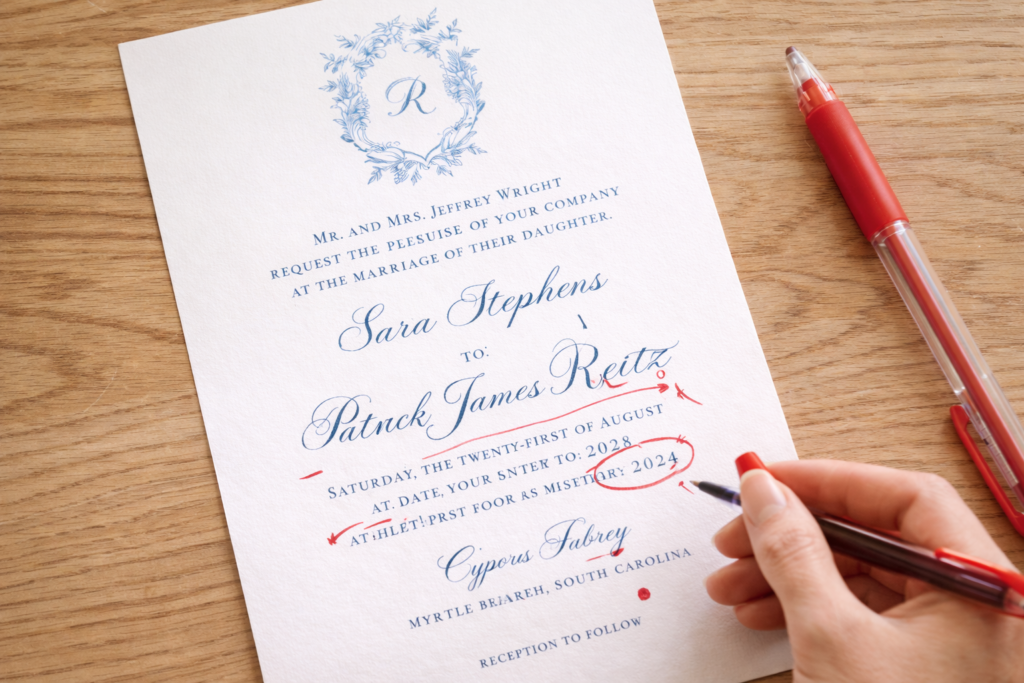 R
MR. AND MRS. JEFFREY WRIGHT
REQUEST THE PLESUISE OF YOUR COMPANY
AT THE MARRIAGE OF THEIR DAUGHTER.
Sara Stephens
TO:
Patrick James Reitz
SATURDAY, THE TWENTY-FIRST OF AUGUST
AT. DATE, YOUR SNTER TO: 2028
PRST FOOR AS 2024
Cyporus Fabrey
MYRTLE SOUTH CAROLINA
RECEPTION TO FOLLOW